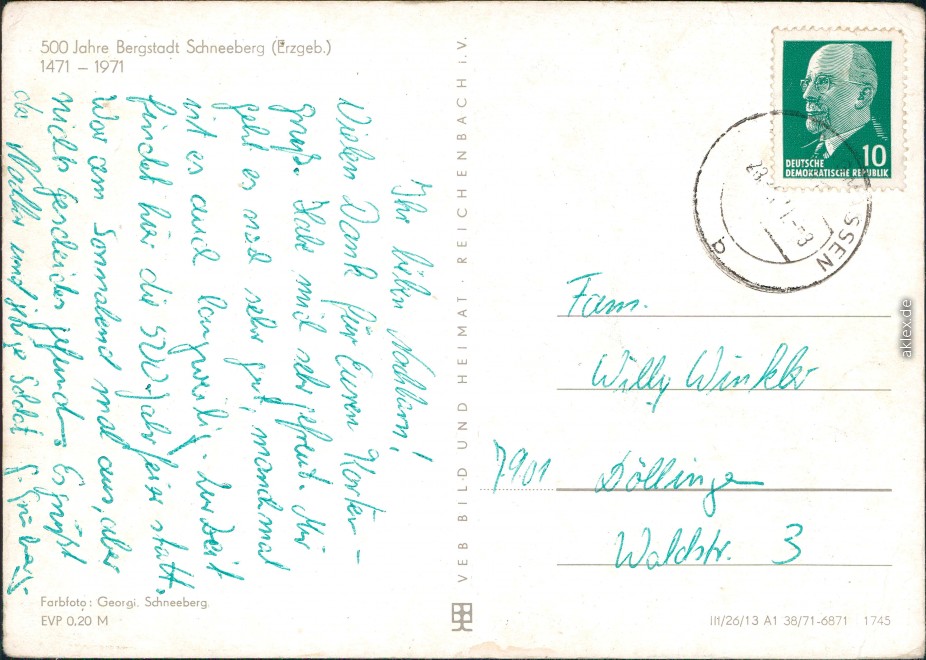 500 Jahre Bergstadt Schneeberg (Erzgeb.)
1471 – 1971
Ihr lieben Nachbarn!
Vielen Dank für Euren Karten-
gruß. Habe mich sehr gefreut. Mir
geht es noch sehr gut, manchmal
ist es auch langweilig. Zur Zeit
findet hier die 500-Jahrfeier statt.
War am Sonnabend mal aus, aber
nichts gescheites gefunden. Es grüßt
der Nachbar und jetzige Soldat
Farbfoto: Georgi, Schneeberg.
EVP 0,20 M
VEB BILD UND HEIMAT · REICHENBACH I. V.
10
DEUTSCHE
DEMOKRATISCHE REPUBLIK
Fam.
Willy Winkler
7901 Döllingen
Waldstr. 3
III/26/13 A1 38/71-6871 1745
aklex.de